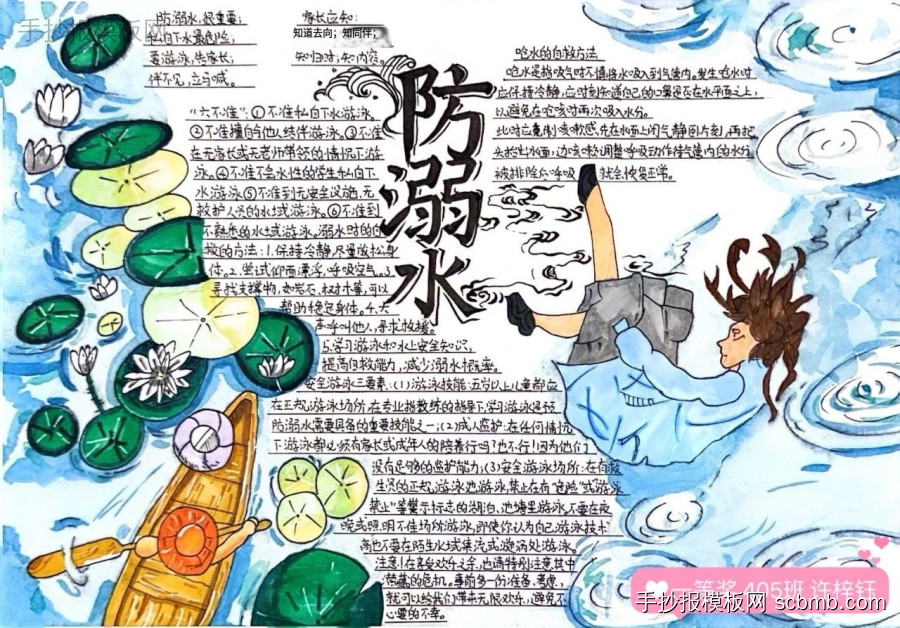 手抄报模板网
防溺水，很重要；
私自下水最危险；
要游泳，先家长；
伴不见，立马喊。
家长应知：
知道去向；知同伴；
知归时；知内容。
防溺水
呛水的自救方法
呛水是指吸气时不慎将水吸入到气管内。发生呛水时
应保持冷静，应时刻知道自己的口鼻是否在水平面之上，
以避免在呛咳时再次吸入水分。
此时应克制咳嗽感，先在水面上闭气静卧片刻，再把
头抬出水面，边咳嗽调整呼吸动作待气管内的水分
被排除后呼吸就会恢复正常。
“六不准”：①不准私自下水游泳。
②不准擅自与他人结伴游泳。③不准
在无家长或无老师带领的情况下游
泳。④不准不会水性的学生私自下
水游泳⑤不准到无安全设施，无
救护人员的水域游泳。⑥不准到
不熟悉的水域游泳。溺水时的自
救的方法：1.保持冷静，尽量放松身
体。2.尝试仰面漂浮，呼吸空气。3.
寻找支撑物，如岩石、树木等，可以
帮助稳定身体。4.大
声呼叫他人，寻求救援。
5.学习游泳和水上安全知识，
提高自救能力，减少溺水概率。
安全游泳三要素：(1)游泳技能：五岁以上儿童都应
在正规游泳场所，在专业指教练的指导下，学习游泳是预
防溺水需要具备的重要技能之一；(2)成人监护：在任何情况
下游泳都必须有家长或成年人的陪着行吗？也不行！因为他们
没有足够的监护能力；(3)安全游泳场所：在有救
生员的正规游泳池游泳，禁止在有“危险”或“游泳
禁止”等警示标志的湖泊、池塘里游泳，不要在夜
晚或照明不佳场所游泳，即使你认为自己游泳技术
高也不要在陌生水域、集流或漩涡处游泳。
注意！在享受欢乐之余，也请特别注意其中
潜藏的危机，事前多一份准备、考虑，
就可以给我们带来无限欢乐，避免不
必要的不幸。
一等奖 405班 许梓钰
手抄报模板网 scbmb.com